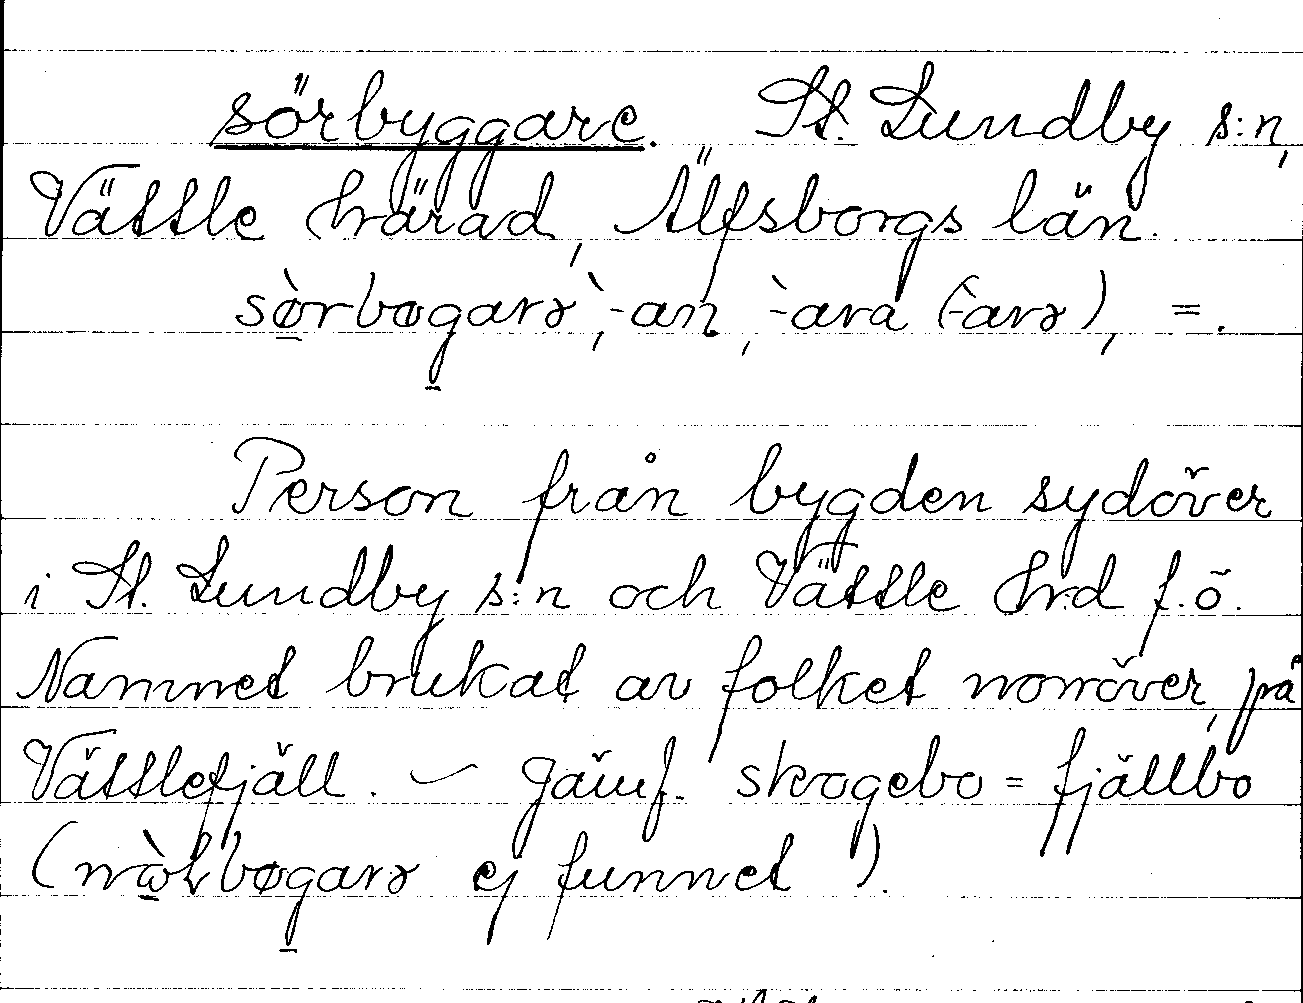 sörbyggare. St. Lundby s:n,
Vättle härad, Älfsborgs län.
sø̀rbøgarə, -an, -ara (-arə), =.
Person från bygden sydöver
i St. Lundby s:n och Vättle hrd f.ö.
Namnet brukat av folket norröver, på
Vättlefjäll. – Jämf. skogebo = fjällbo
(bøgarə ej funnet).